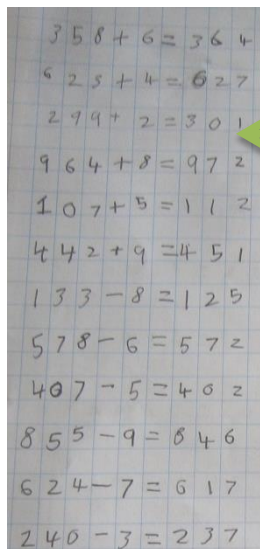 358+6=364
623+4=627
299+2=301
964+8=972
107+5=112
442+9=451
133-8=125
578-6=572
407-5=402
855-9=846
624-7=617
240-3=237